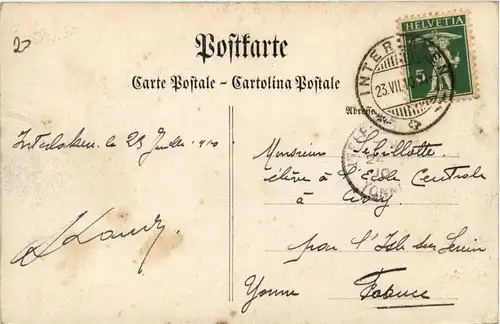 Postkarte
Carte Postale - Cartolina Postale
HELVETIA
5
INTERLAKEN
23.VII.10
Adresse
Interlaken, le 23 Juillet 1910
Monsieur Sebillotte
élève à l'École Centrale
à Civry
par l'Isle sur Serein
Yonne France